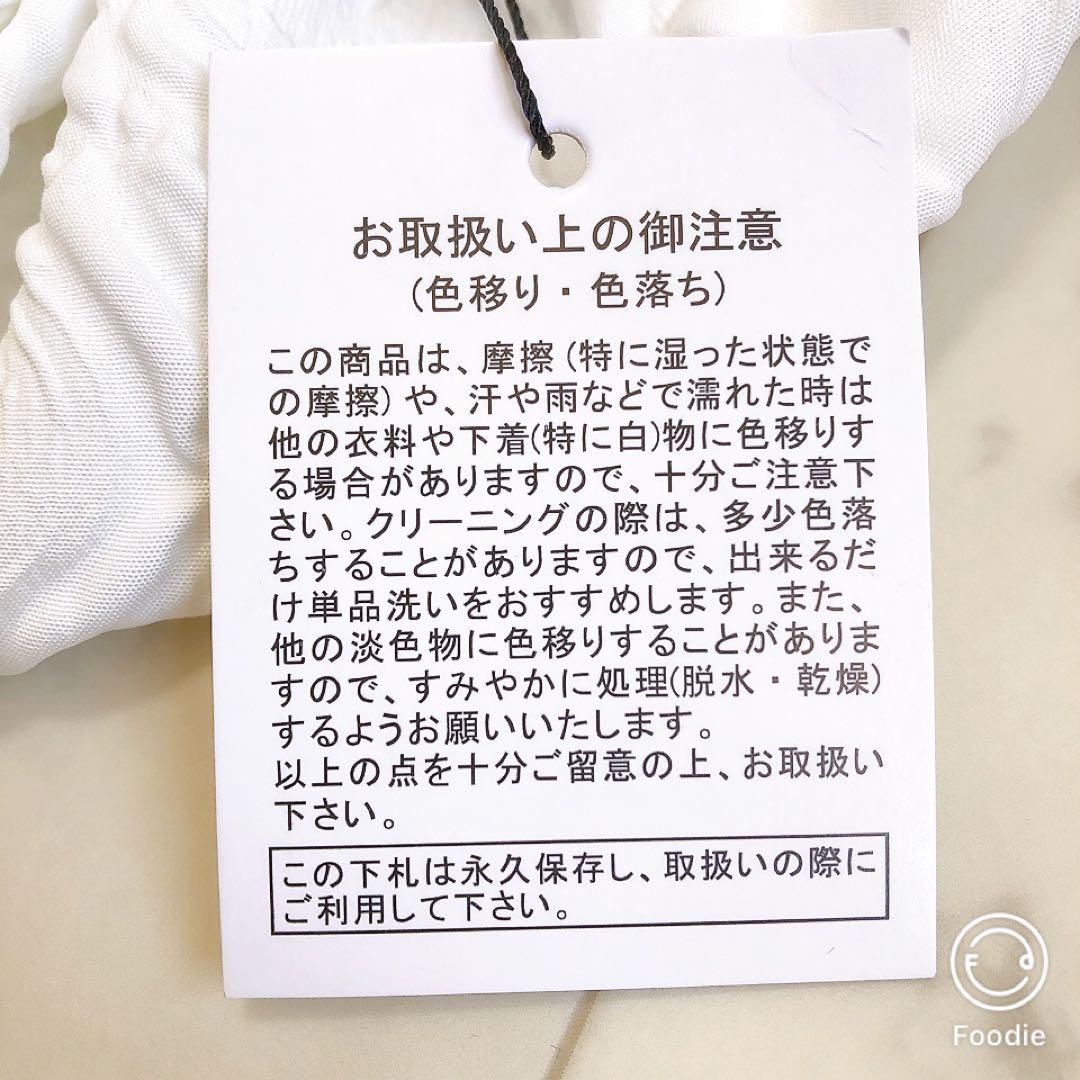 お取扱い上の御注意
(色移り・色落ち)
この商品は、摩擦(特に湿った状態で
の摩擦)や、汗や雨などで濡れた時は
他の衣料や下着(特に白)物に色移りす
る場合がありますので、十分ご注意下
さい。クリーニングの際は、多少色落
ちすることがありますので、出来るだ
け単品洗いをおすすめします。また、
他の淡色物に色移りすることがありま
すので、すみやかに処理(脱水・乾燥)
するようお願いいたします。
以上の点を十分ご留意の上、お取扱い
下さい。
この下札は永久保存し、取扱いの際に
ご利用して下さい。
F d
Foodie